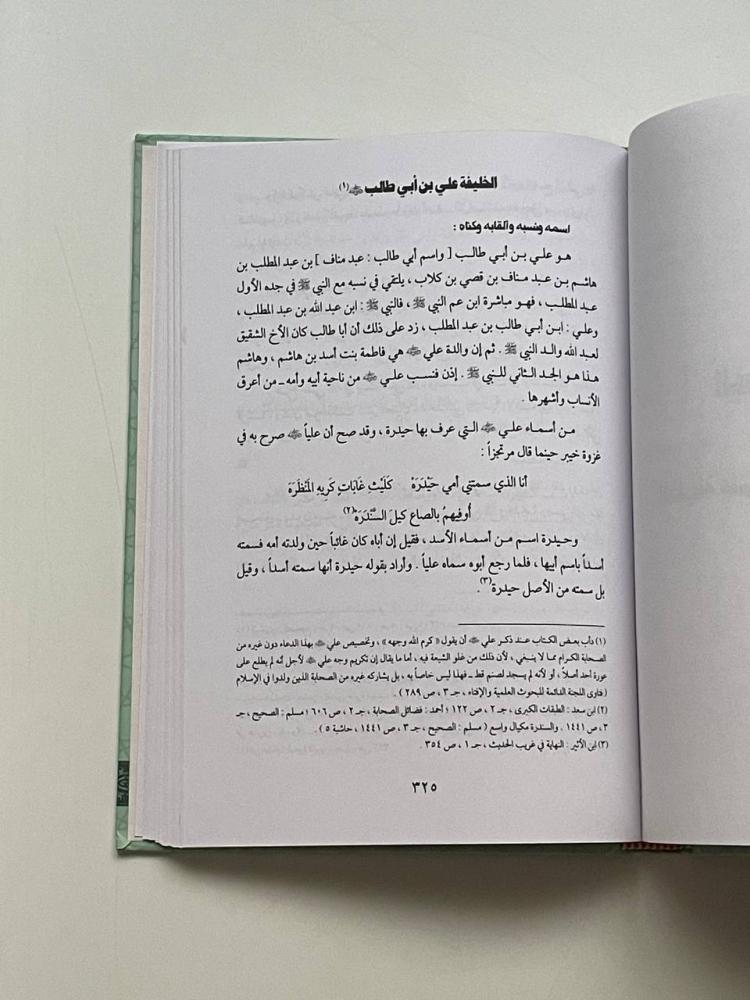 الخليفة علي بن أبي طالب ﵁(١)
اسمه ونسبه وألقابه وكناه :
هـو علي بن أبي طالب [ واسم أبي طالب : عبد مناف ] بن عبد المطلب بن
هاشم بـن عبـد منـاف بن قصي بن كلاب ، يلتقي في نسبه مع النبي ﷺ في جده الأول
عبد المطلب ، فهـو مباشرة ابن عم النبي ﷺ ، فالنبي ﷺ : ابن عبد الله بن عبد المطلب ،
وعلي : ابـن أبي طالب بن عبد المطلب ، زد على ذلك أن أبا طالب كان الأخ الشقيق
لعبد الله والـد النبي ﷺ . ثم إن والدة علي ﵁ هي فاطمة بنت أسد بن هاشم ، وهاشم
هـذا هـو الجـد الثـاني للنبي ﷺ . إذن فنسب علـي ﵁ من ناحية أبيه وأمه ـ من أعرق
الأنساب وأشهرها .
مـن أسمـاء علي ﵁ التـي عرف بها حيدرة ، وقد صح أن علياً ﵁ صرح به في
غزوة خيبر حينما قال مرتجزاً :
أنا الذي سمتني أمي حَيْدَرَهْ كَلَيْثِ غَابَاتٍ كَرِيهِ المَنْظَرَهْ
أُوفِيهِمُ بالصاع كيلَ السَّنْدَرَهْ(٢)
وحـيدرة اسـم مـن أسمـاء الأسد ، فقيل إن أباه كان غائباً حين ولدته أمه فسمته
أسـداً باسم أبيها ، فلما رجع أبوه سماه علياً . وأراد بقوله حيدرة أنها سمته أسداً ، وقيل
بل سمته من الأصل حيدرة(٣).
(١) دأب بعض الكتاب عنـد ذكـر علي ﵁ أن يقول « كرم الله وجهه » ، وتخصيص علي ﵁ بهذا الدعاء دون غيره من
الصحابة الكرام ممـا لا ينبغي ، لأن ذلك من غلو الشيعة فيه ، أما ما يقال إن تكريم وجه علي ﵁ لأجل أنه لم يطلع على
عورة أحد أصلاً ، أو لأنه لم يسجد لصنم قط ـ فهذا ليس خاصاً به ، بل يشاركه غيره من الصحابة الذين ولدوا في الإسلام
( فتاوى اللجنة الدائمة للبحوث العلمية والإفتاء ، جـ ٣ ، ص ٢٨٩ ) .
(٢) ابن سعد : الطبقات الكبرى ، جـ ٢ ، ص ١٢٢ ؛ أحمد : فضائل الصحابة ، جـ ٢ ، ص ٦٠٦ ؛ مسلم : الصحيح ، جـ
٣ ، ص ١٤٤١ . والسندرة مكيال واسع ( مسلم : الصحيح ، جـ ٣ ، ص ١٤٤١ ، حاشية ٥ ) .
(٣) ابن الأثير : النهاية في غريب الحديث ، جـ ١ ، ص ٣٥٤ .
٣٢٥